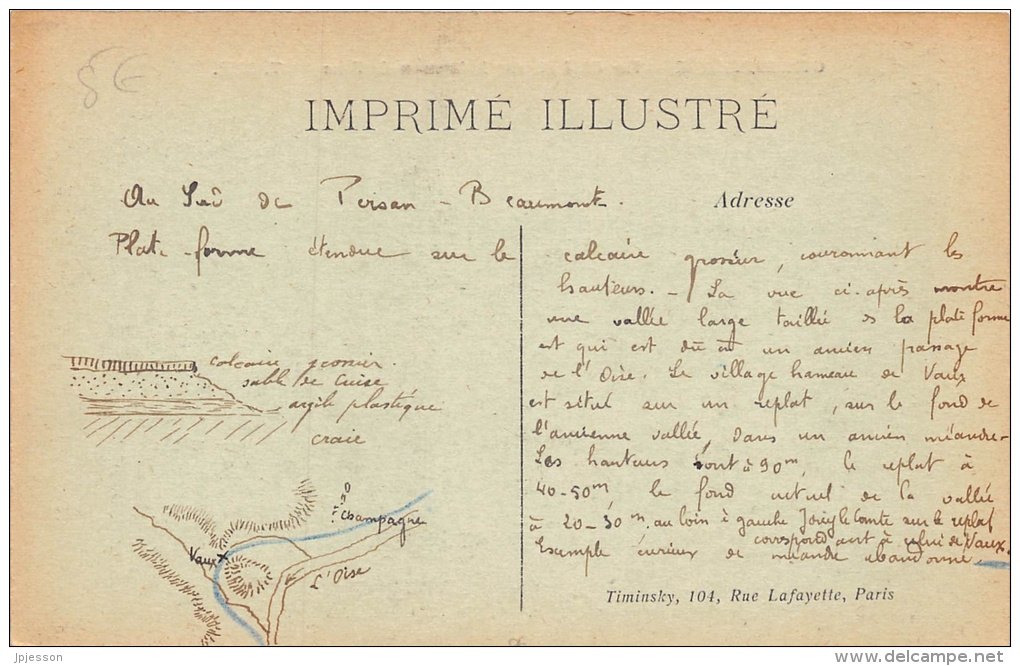 8 €
IMPRIMÉ ILLUSTRÉ
Au Sud de Persan - Beaumont.
Adresse
Plate-forme étendue sur le
calcaire grossier, couronnant les
hauteurs. - La vue ci-après montre
une vallée large taillée ds la plate forme
et qui est dû à un ancien passage
de l'Oise. Le village hameau de Vaux
est situé sur un replat, sur le fond de
l'ancienne vallée, dans un ancien méandre -
Les hauteurs sont à 90m, le replat à
40-50m, le fond actuel de la vallée
à 20-30m. au loin à gauche Jouy le Comte sur le replat
correspondant à celui de Vaux.
Exemple curieux de méandre abandonné
calcaire grossier.
sable de Cuise
argile plastique
craie
Champagne
Vaux
L'Oise
Timinsky, 104, Rue Lafayette, Paris
jpjesson
www.delcampe.net